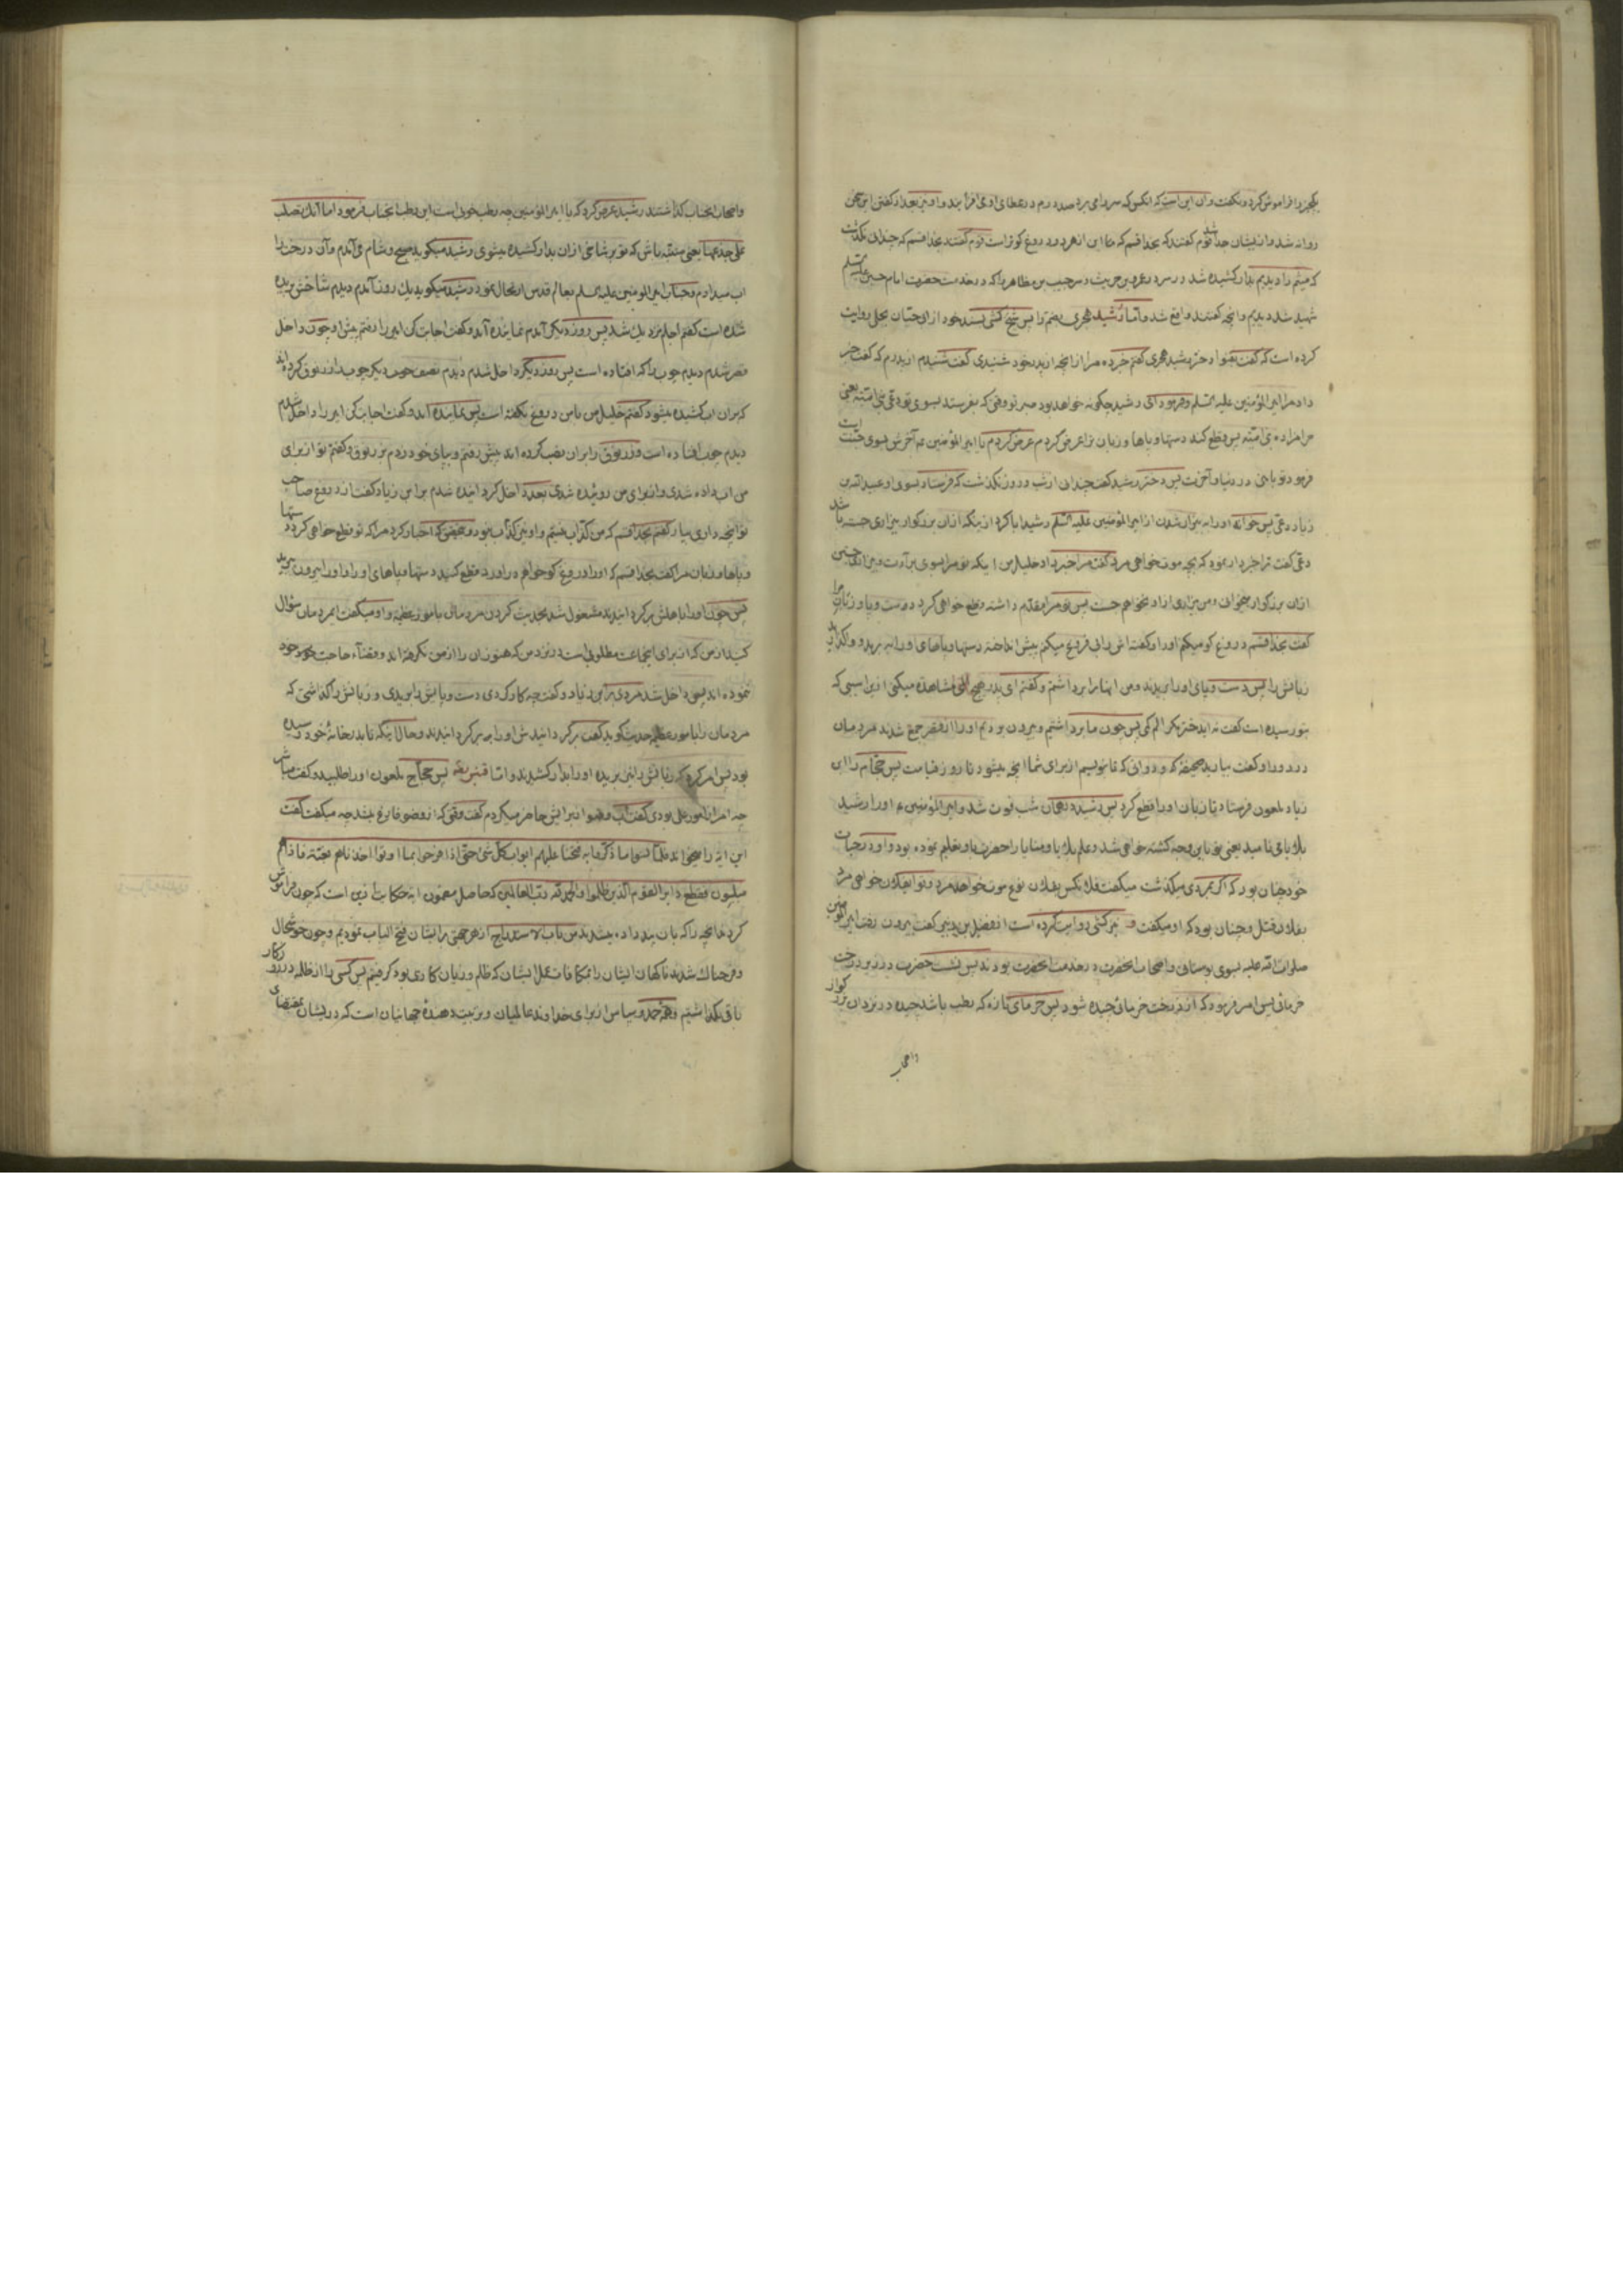 یکچیز را فراموش کرد و نگفت وان این است که انکس که سر را می برد صد درم در عطای او می افزایند و او نیز بعد از گفتن این سخن
روانه شد و از ایشان جدا شد قوم گفتند که بخدا قسم که این از هر دو دروغ کوتر است قوم گفتند بخدا قسم که چندان نگذشت
که میثم را دیدیم بدار کشیده شد در سر در عمرو بن حریث و سر حبیب بن مظاهر را که در خدمت حضرت امام حسین علیه السلم
شهید شد دیدیم و انچه گفتند واقع شد و اما رشید هجری بضم را پس شیخ کشی بسند خود از ابو حیان بجلی روایت
کرده است که گفت بقنوا دختر رشید هجری گفتم خبر ده مرا از انچه از پدر خود شنیدی گفت شنیدم از پدرم که گفت خبر
داد مرا امیر المؤمنین علیه السلم و فرمود ای رشید چگونه خواهد بود صبر تو وقتی که بفرستد بسوی تو دعی بنی امیه یعنی
حرامزاده بنی امیه پس قطع کند دستها و پاها و زبان ترا عرض کردم یا امیر المؤمنین آخرش بسوی جنت است
فرمود تو با منی در دنیا و آخرت پس دختر رشید گفت چندانی از شب و روز نگذشت که فرستاد بسوی او عبید الله بن
زیاد دعی پس خواند او را به بیزار شدن از امیر المؤمنین علیه السلم رشید ابا کرد از اینکه از ان بزرگوار بیزاری جسته باشد
دعی گفت ترا خبردار نموده که بچه موت خواهی مرد گفت مرا خبر داد خلیل من اینکه تو مرا بسوی برآءت و بیزاری جستن
از ان بزرگوار میخوانی و من بیزاری از او نخواهم جست پس تو مرا مقدم داشته و قطع خواهی کرد دست و پا و زبان مرا
گفت بخدا قسم دروغ کو میکنم او را و گفته اش را بی فروغ میکنم پیش انداخته دستها و پاهای او را ببرید و واگذارید
زبانش را پس دست و پای او را بریدند و من انها را برداشتم و گفتم ای پدر هیچ المی مشاهده میکنی از این اسیبی که
بتو رسیده است گفت نه ایدختر مگر الم کمی پس چون ما برداشتیم و بیرون بردیم او را از قصر جمع شدند مردمان
در دور او گفت بیارید صحیفه که و دواتی که تا بنویسم از برای شما انچه میشود تا روز قیامت پس حجام را ابن
زیاد ملعون فرستاد تا زبان او را قطع کرد پس رشید در همان شب فوت شد و امیر المؤمنین ع او را رشید
بلایا می نامید یعنی تو باین وجه کشته خواهی شد و علم بلایا و منایا را حضرت باو تعلیم نموده بود و او در حیات
خود چنان بود که اگر بمردی میگذشت میگفت فلانکس بفلان نوع موت خواهد مرد و تو بفلان خواهی مرد
بفلان قتل و چنان بود که او میگفت و نیز کشی روایت کرده است از فضیل بن زبیر گفت بیرون رفت امیر المؤمنین
صلوات الله علیه بسوی بوستانی و اصحاب انحضرت در خدمت انحضرت بودند پس نشست حضرت در زیر درخت
خرمائی پس امر فرمود که از درخت خرمائی چیده شود پس خرمای تازه که رطب باشد چیده در نزد ان بزرگوار
واصحاب
واصحاب انجناب گذاشتند رشید عرض کرد که یا امیر المؤمنین چه رطب خوبی است این رطب انجناب فرمود اما انک تصلب
علی جذعها یعنی متنبه باش که تو بر شاخی از ان بدار کشیده میشوی رشید میگوید صبح و شام می آمدم و آن درخت را
اب میدادم و جناب امیر المؤمنین علیه السلم بعالم قدس ارتحال نمود رشید میگوید یک روز آمدم دیدم شاخش بریده
شده است گفتم اجلم نزدیک شد پس روز دیگر آمدم نماینده آمد و گفت اجابت کن امیر را رفتم پیش او چون داخل
قصر شدم دیدم چوب را که افتاده است پس روز دیگر داخل شدم دیدم نصف دیگر چوب را زرنوق کرده اند
که بران اب کشیده میشود گفتم خلیل من بامن دروغ نگفته است پس نماینده آمد و گفت اجابت کن امیر را داخل شدم
دیدم چوب افتاده است و زرنوق را بران نصب کرده اند پیش رفتم و بپای خود زدم بزرنوق و گفتم تو از برای
من اب داده شدی و از برای من روئیده شدی بعد داخل گردانیده شدم بر ابن زیاد گفت از دروغ صاحب
تو انچه داری بیار گفتم بخدا قسم که من کذاب نیستم و او نیز کذاب نبود و بتحقیق که اخبار کرد مرا که تو قطع خواهی کرد دستها
و پاها و زبان مرا گفت بخدا قسم که او را دروغ کو خواهم در اورد قطع کنید دستها و پاهای او را و او را بیرون برید
پس چون او را باهلش برگردانیدند مشغول شد بحدیث کردن مردمان بامور عظیمه و او میگفت ایمردمان سؤال
کنید از من که از برای اینجماعت مطلوبی است در نزد من که هنوز ان را از من نگرفته اند و قضآء حاجت خود
نموده اند پس داخل شد مردی بر ابن زیاد و گفت چه کار کردی دست و پایش را بریدی و زبانش را گذاشتی که
مردمان را بامور عظیمه حدیث گوید گفت برگردانیدش او را برگردانیدند و حال انکه تا بدر خانهٔ خود رسیده
بود پس امر کرد که زبانش را نیز بریده او را بدار کشیدند و اما قنبر بفتح پس حجاج ملعون او را طلبید و گفت مباشر
چه امر از امور علی بودی گفت اب وضو از برایش حاضر میکردم گفت وقتی که از وضو فارغ میشد چه میگفت گفت
این ایه را میخواند فلما نسوا ما ذکروا به فتحنا علیهم ابواب کل شئ حتی اذا فرحوا بما اوتوا اخذناهم بغتة فاذاهم
مبلسون فقطع دابر القوم الذین ظلموا والحمد لله رب العالمین که حاصل مضمون ایه حکایت این است که چون فراموش
کردند انچه را که بان پند داده میشدند من باب الاستدراج از هر جهتی بر ایشان فتح الباب نمودیم و چون خوشحال
و فرحناک شدند ناگهان ایشان را بمکافات عمل ایشان که ظلم و زیان کاری بود گرفتیم پس کسی را از ظلمه در روزگار
باقی نگذاشتیم و همه حمد و سپاس از برای خداوند عالمیان و تربیت دهندهٔ جهانیان است که در ایشان بمقتضای